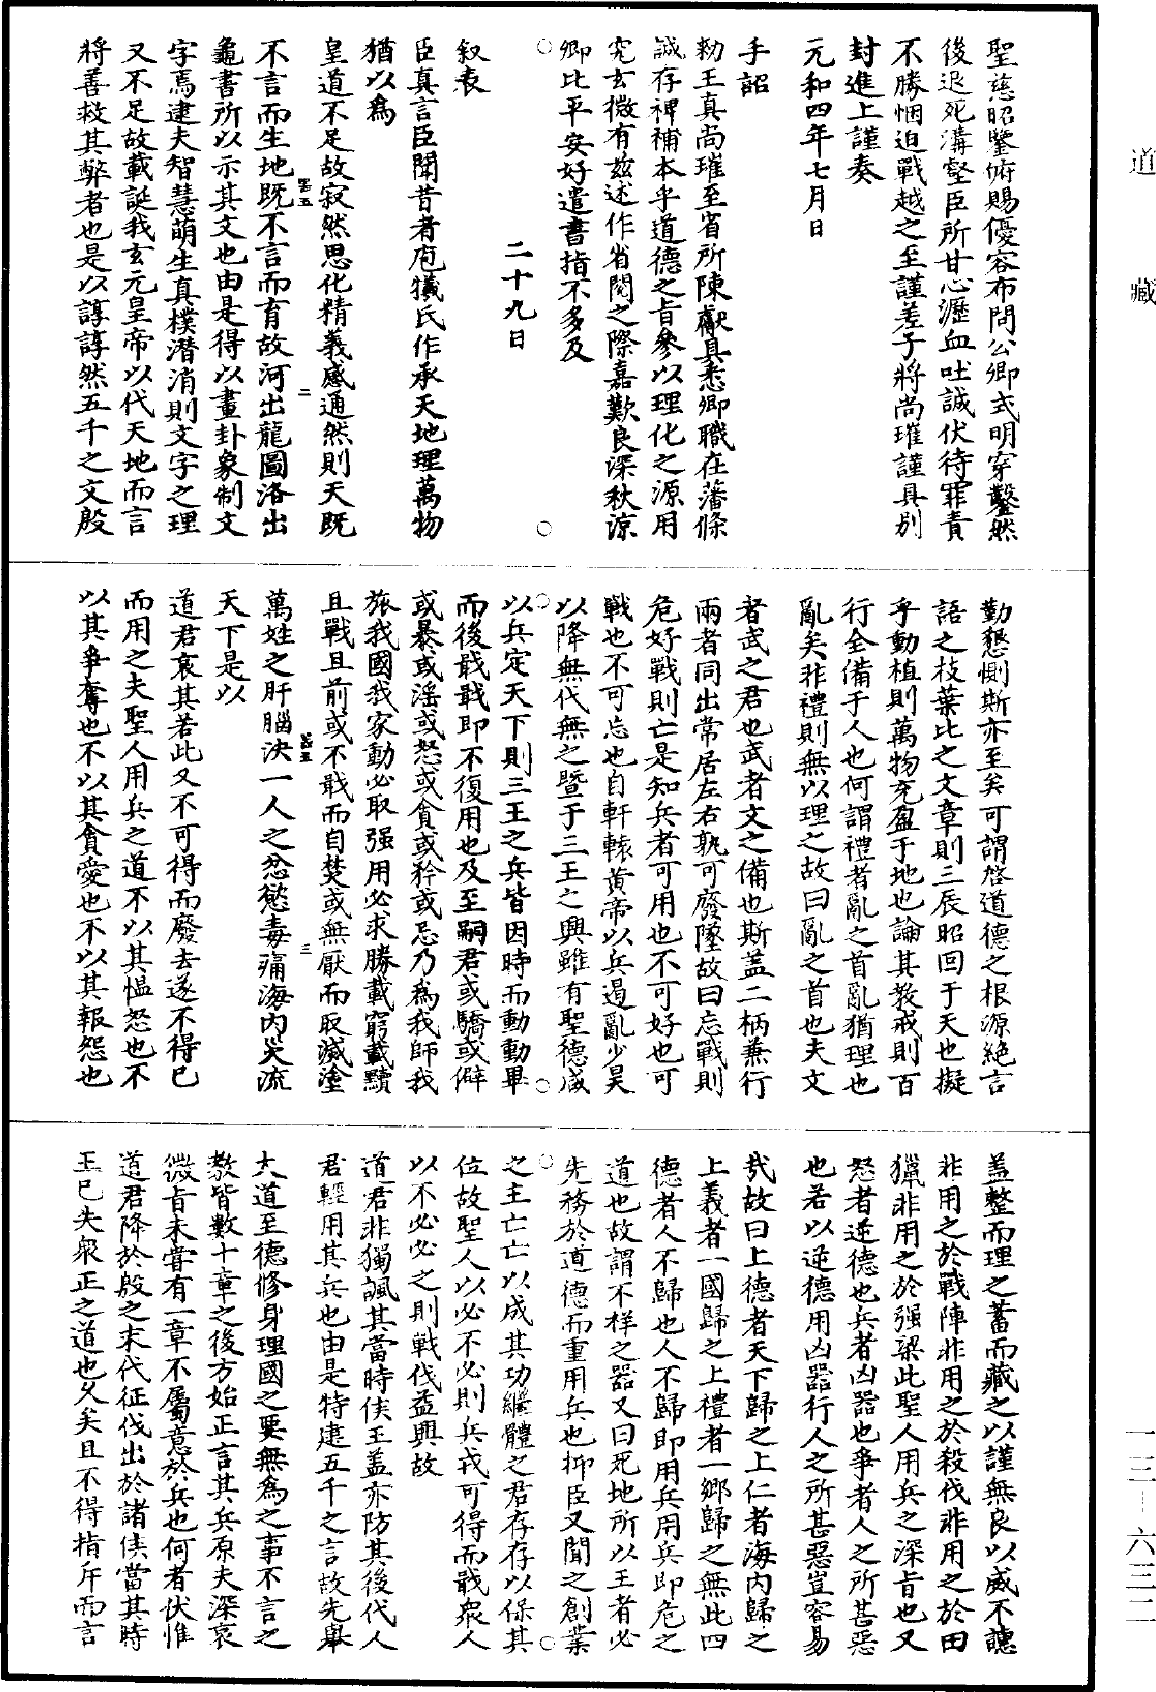 道藏
一三-六三二
聖慈昭鑒俯賜優容布問公卿式明穿鑿然
後退死溝壑臣所甘心瀝血吐誠伏待罪責
不勝悃迫戰越之至謹差子將尚璀謹具別
封進上謹奏
元和四年七月日
手詔
勑王真尚璀至省所陳獻具悉卿職在藩條
誠存裨補本乎道德之旨參以理化之源用
究玄微有茲述作省閱之際嘉歎良深秋涼
卿比平安好遣書指不多及
二十九日
叙表
臣真言臣聞昔者庖犧氏作承天地理萬物
猶以為
皇道不足故寂然思化精義感通然則天既
不言而生地既不言而育故河出龍圖洛出
龜書所以示其文也由是得以畫卦象制文
字焉逮夫智慧萌生真樸潛消則文字之理
又不足故載誕我玄元皇帝以代天地而言
將善救其弊者也是以諄諄然五千之文殷
勤懇惻斯亦至矣可謂啓道德之根源絕言
語之枝葉比之文章則三辰昭回于天也擬
乎動植則萬物充盈于地也論其教戒則百
行全備于人也何謂禮者亂之首亂猶理也
亂矣非禮則無以理之故曰亂之首也夫文
者武之君也武者文之備也斯蓋二柄兼行
兩者同出常居左右孰可廢墜故曰忘戰則
危好戰則亡是知兵者可用也不可好也可
戰也不可忘也自軒轅黃帝以兵遏亂少昊
以降無代無之暨于三王之興雖有聖德咸
以兵定天下則三王之兵皆因時而動動畢
而後戢戢即不復用也及至嗣君或驕或僻
或暴或滛或怒或貪或矜或忌乃為我師我
旅我國我家動必取强用必求勝載窮載黷
且戰且前或不戢而自焚或無厭而取滅塗
萬姓之肝腦決一人之忿慾毒痡海內災流
天下是以
道君哀其若此又不可得而廢去遂不得已
而用之夫聖人用兵之道不以其愠怒也不
以其爭奪也不以其貪愛也不以其報怨也
蓋整而理之蓄而藏之以謹無良以威不譓
非用之於戰陣非用之於殺伐非用之於田
獵非用之於强梁此聖人用兵之深旨也又
怒者逆德也兵者凶器也爭者人之所甚惡
也若以逆德用凶器行人之所甚惡豈容易
哉故曰上德者天下歸之上仁者海內歸之
上義者一國歸之上禮者一鄉歸之無此四
德者人不歸也人不歸即用兵用兵即危之
道也故謂不祥之器又曰死地所以王者必
先務於道德而重用兵也抑臣又聞之創業
之主亡亡以成其功繼體之君存存以保其
位故聖人以必不必則兵戎可得而戢衆人
以不必必之則戰伐益興故
道君非獨諷其當時侯王蓋亦防其後代人
君輕用其兵也由是特建五千之言故先舉
大道至德修身理國之要無為之事不言之
教皆數十章之後方始正言其兵原夫深衷
微旨未嘗有一章不屬意於兵也何者伏惟
道君降於殷之末代征伐出於諸侯當其時
王已失衆正之道也久矣且不得指斥而言